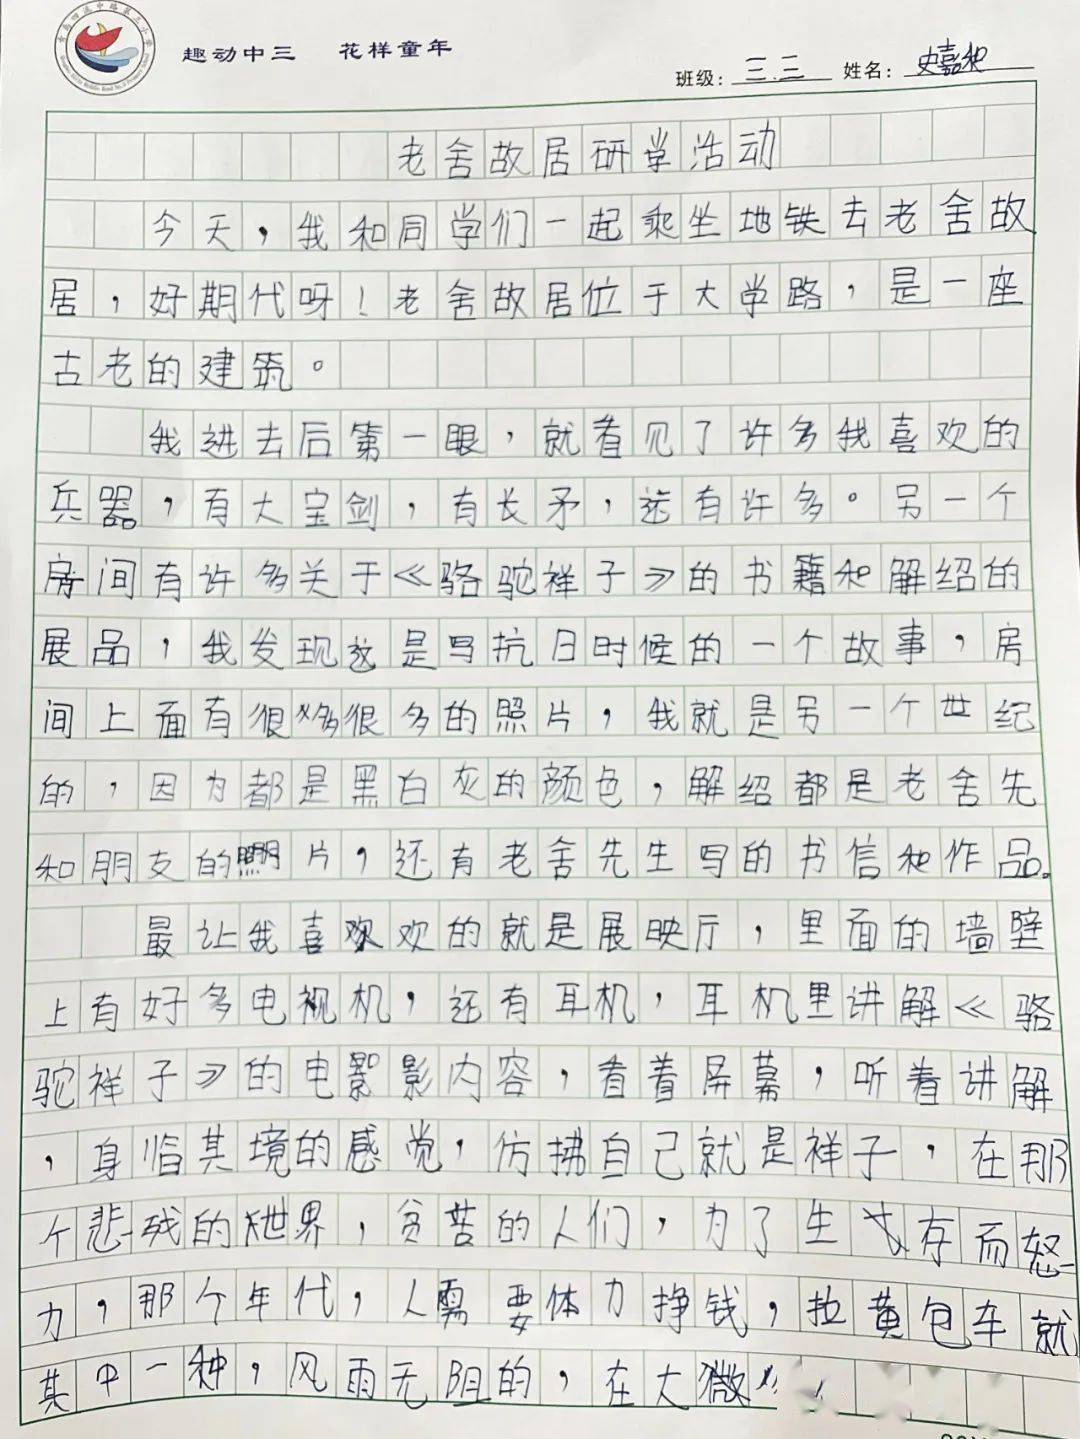 趣动中三 花样童年
班级：三.三 姓名：史嘉和
老舍故居研学活动
今天，我和同学们一起乘坐地铁去老舍故
居，好期代呀！老舍故居位于大学路，是一座
古老的建筑。
我进去后第一眼，就看见了许多我喜欢的
兵器，有大宝剑，有长矛，还有许多。另一个
房间有许多关于《骆驼祥子》的书籍和解绍的
展品，我发现这是写抗日时候的一个故事，房
间上面有很多很多的照片，我就是另一个世纪
的，因为都是黑白灰的颜色，解绍都是老舍先
和朋友的照片，还有老舍先生写的书信和作品。
最让我喜欢欢的就是展映厅，里面的墙壁
上有好多电视机，还有耳机，耳机里讲解《骆
驼祥子》的电影影内容，看着屏幕，听着讲解
，身临其境的感觉，仿拂自己就是祥子，在那
个悲残的世界，贫苦的人们，为了生存而怒
力，那个年代，人需要体力挣钱，拉黄包车就
其中一种，风雨无阻的，在大